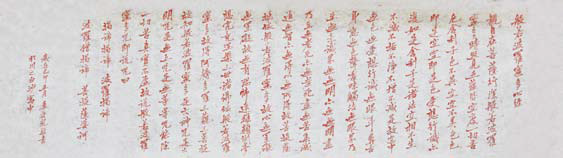 般若波羅蜜多心經
觀自在菩薩行深般若波羅
蜜多時照見五蘊皆空度一切苦
厄舍利子色不異空空不異色色
即是空空即是色受想行識亦
復如是舍利子是諸法空相不生
不滅不垢不淨不增不減是故空中
無色無受想行識無眼耳鼻舌
身意無色聲香味觸法無眼界乃
至無意識界無無明亦無無明盡
乃至無老死亦無老死盡無苦集滅
道無智亦無得以無所得故菩提
薩埵依般若波羅蜜多故心無罣
礙無罣礙故無有恐怖遠離顛倒夢
想究竟涅槃三世諸佛依般若波羅
蜜多故得阿耨多羅三藐三菩提故
知般若波羅蜜多是大神咒是大
明咒是無上咒是無等等咒能除
一切苦真實不虛故說般若波羅
蜜多咒即說咒曰
揭諦揭諦 波羅揭諦
波羅僧揭諦 菩提薩婆訶